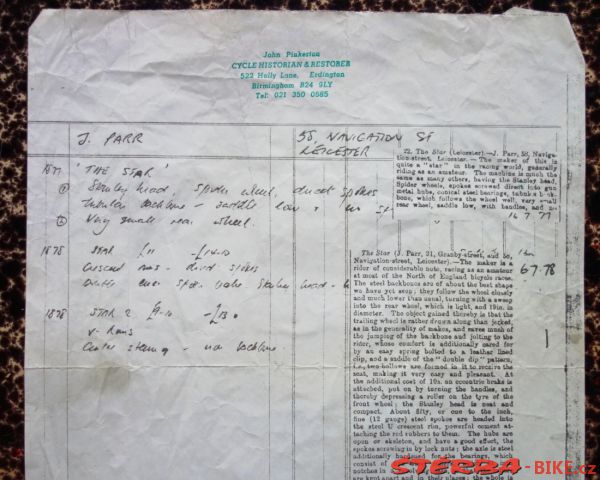 John Pinkerton
CYCLE HISTORIAN & RESTORER
522 Holly Lane, Erdington
Birmingham B24 9LY
Tel: 021 350 0685
J. PARR
58, NAVIGATION ST
LEICESTER
1877 "THE STAR"
Stanley head, spider wheel, direct spokes
Tubular backbone - saddle low
Very small rear wheel.
16.7.77
22. The Star (Leicester).—J. Parr, 58, Naviga-
tion-street, Leicester.— The maker of this is
quite a "star" in the racing world, generally
riding as an amateur. The machine is much the
same as many others, having the Stanley head,
Spider wheels, spokes screwed direct into gun
metal hubs, conical steel bearings, tubular back-
bone, which follows the wheel well, very small
rear wheel, saddle low, with handles, and
1878 STAR £11 - £14-10
Crescent rims - direct spokes
1878 STAR 2 £9-10 - £13
V-rims
Centre steering - backbone
6.7.78
The Star (J. Parr, 31, Granby-street, and 58,
Navigation-street, Leicester).—The maker is a
rider of considerable note, racing as an amateur
at most of the North of England bicycle races.
The steel backbones are of about the best shape
we have yet seen; they follow the wheel closely
and much lower than usual, turning with a sweep
into the rear wheel, which is light, and 19in. in
diameter. The object gained thereby is that the
trailing wheel is rather drawn along than jerked,
as in the generality of makes, and saves much of
the jumping of the backbone and jolting to the
rider, whose comfort is additionally cared for
by an easy spring bolted to a leather lined
clip, and a saddle of the "double dip" pattern,
i.e., two hollows are formed in it to receive the
seat, making it very easy and pleasant. At
the additional cost of 10s. an eccentric brake is
attached, put on by turning the handles, and
thereby depressing a roller on the tyre of the
front wheel; the Stanley head is neat and
compact. About fifty, or one to the inch,
fine (12 gauge) steel spokes are headed into
the steel U crescent rim, powerful cement at-
taching the red rubbers to them. The hubs are
open or skeleton, and have a good effect, the
spokes screwing in by lock nuts; the axle is steel
additionally hardened for the bearings, which
consist of
notches in
are kept apart and in their places; the whole is
STERBA-BIKE.cz